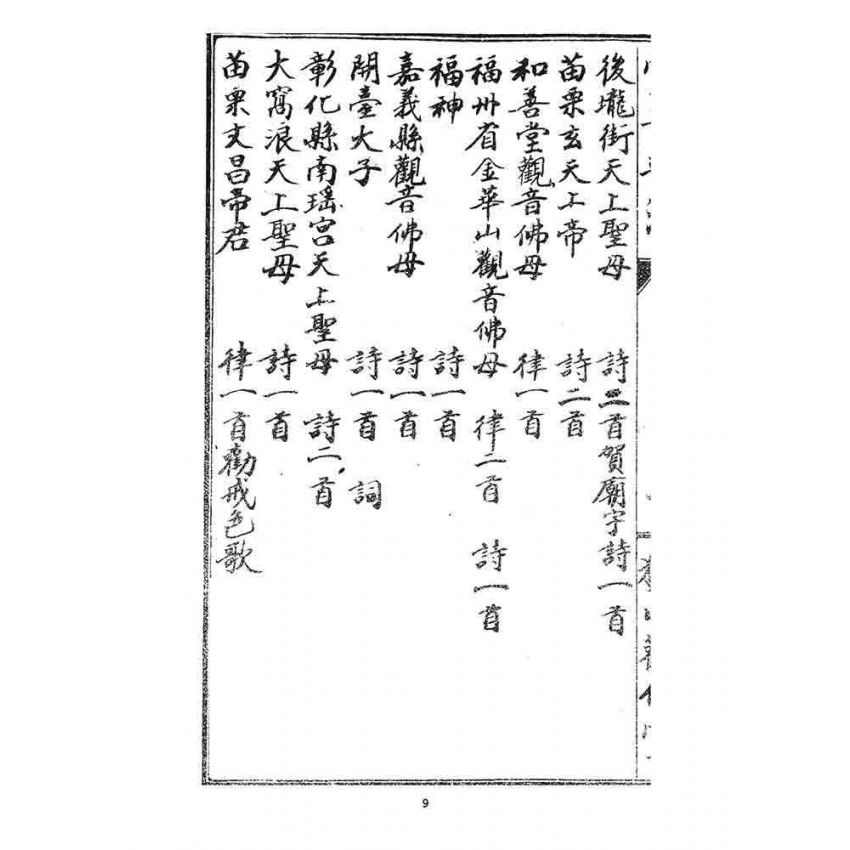 後壠街天上聖母 詩二首賀廟宇詩一首
苗栗玄天上帝 詩二首
和善堂觀音佛母 律一首
福州省金華山觀音佛母 律二首 詩一首
福神 詩一首
嘉義縣觀音佛母 詩一首
開臺大子 詩一首 詞
彰化縣南瑤宮天上聖母 詩二首
大窩浪天上聖母 詩一首
苗栗文昌帝君 律一首勸戒色歌
9